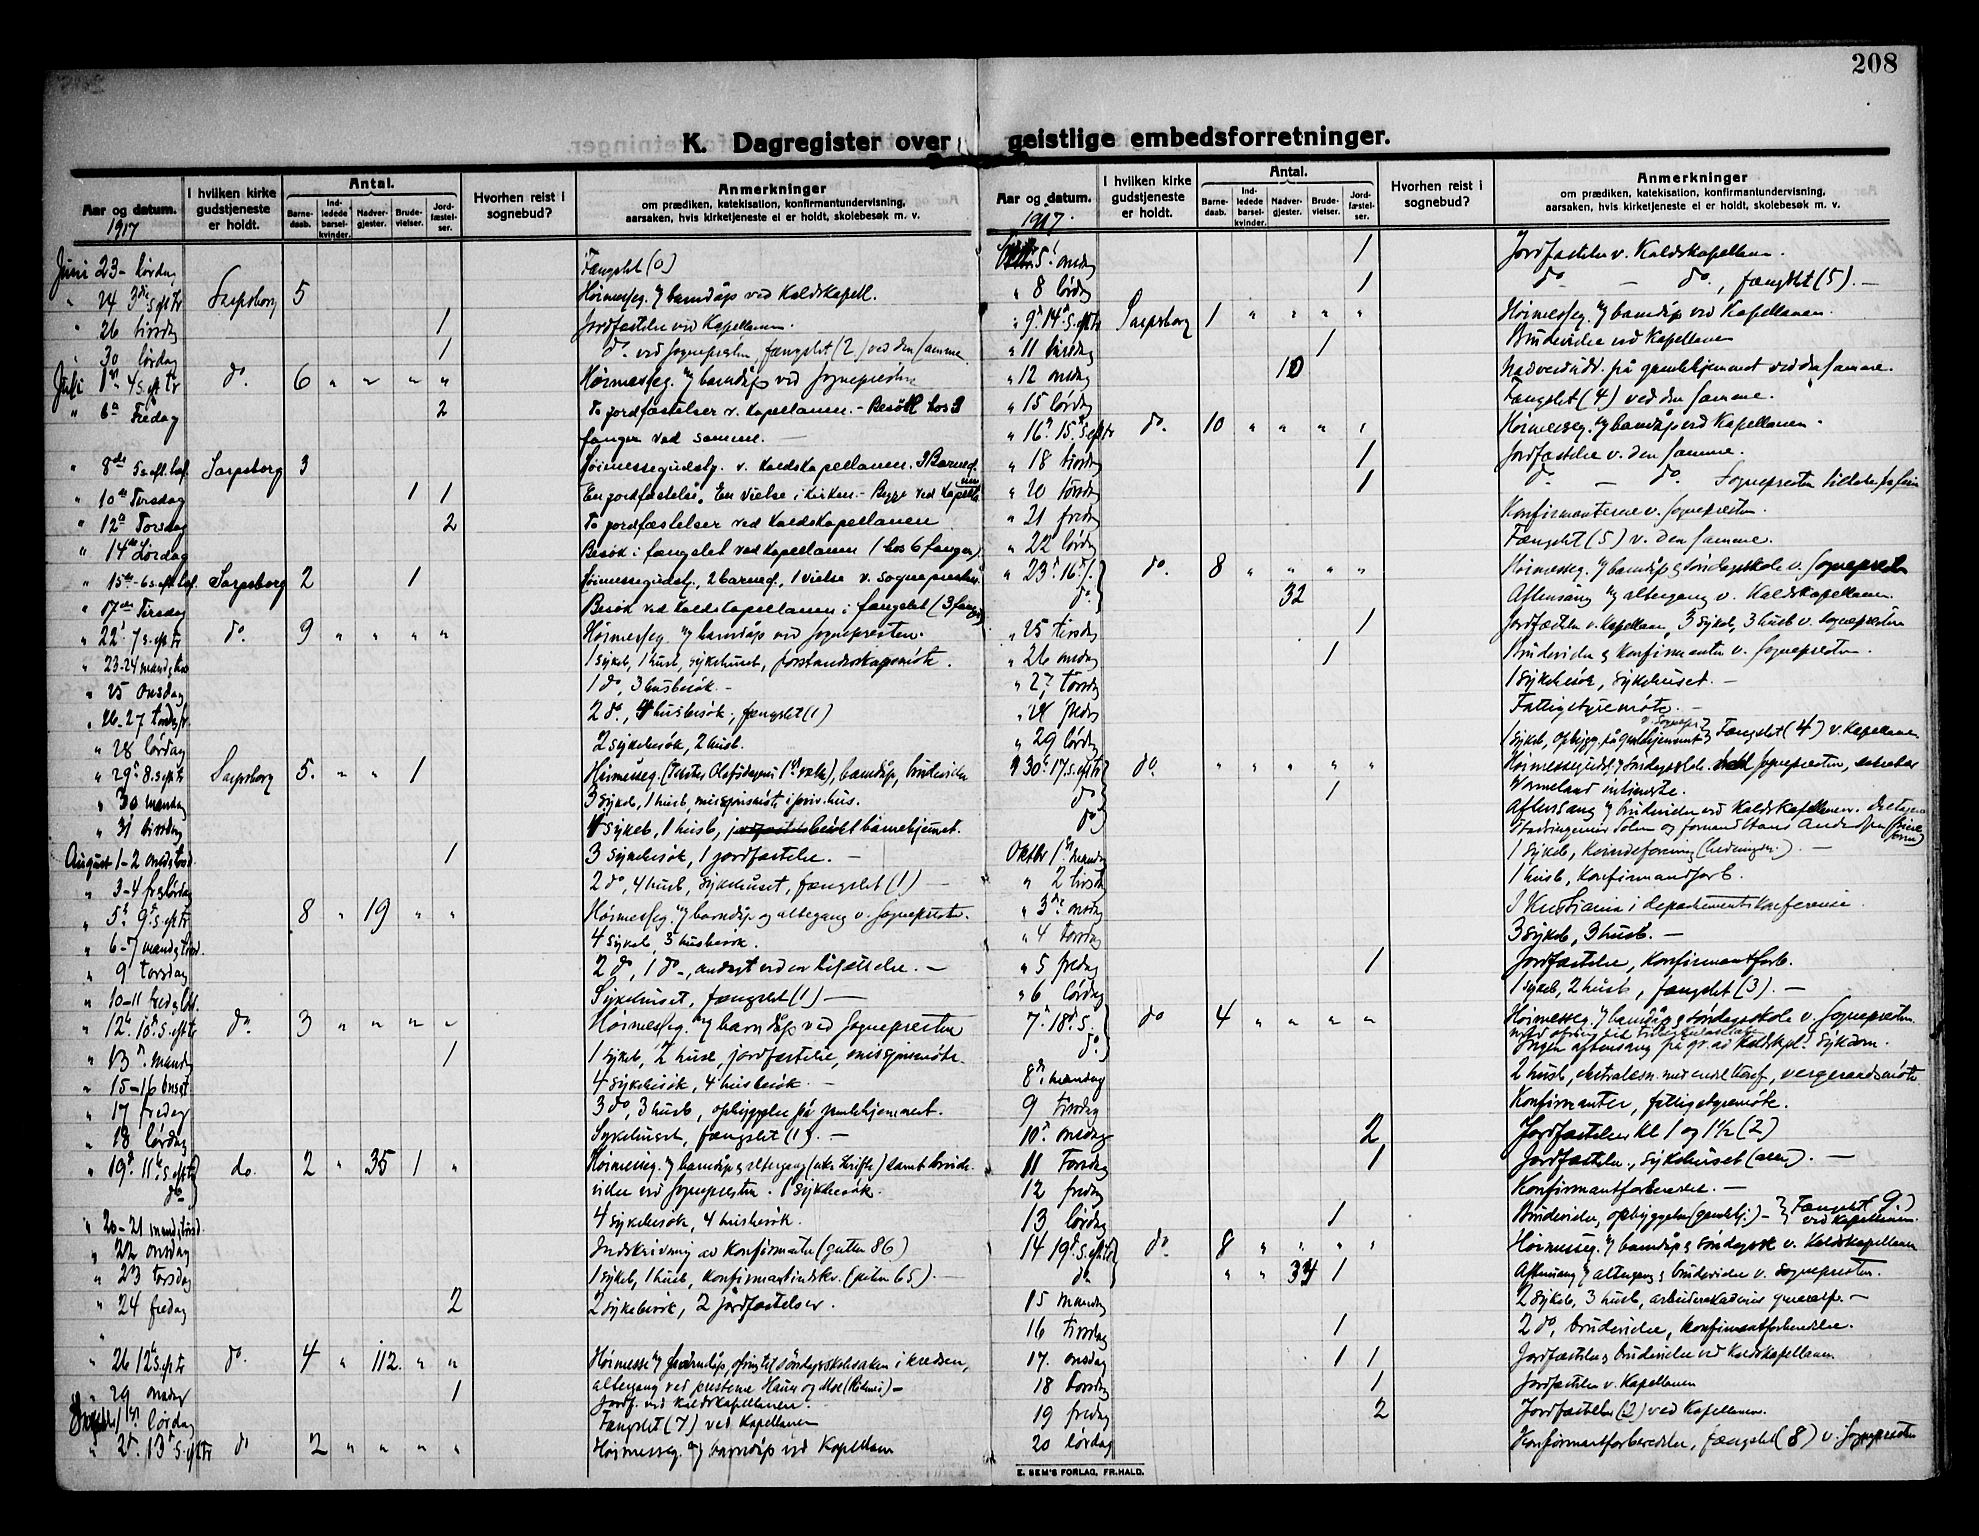 208
K. Dagregister over geistlige embedsforretninger.
Aar og datum. 1917
I hvilken kirke gudstjeneste er holdt.
Antal.
Barnedaab.
Indledede barselkvinder.
Nadvergjester.
Brudevielser.
Jordfæstelser.
Hvorhen reist i sognebud?
Anmerkninger
om prædiken, katekisation, konfirmantundervisning,
aarsaken, hvis kirketjeneste ei er holdt, skolebesøk m. v.
Juni 23 - lørdag Fængslet (0)
" 24 3die s. e. tr Sarpsborg 5 Høimesseg. m/ barnedåp ved Kaldskapell.
" 26 tirsdag 1 Jordfæstelse ved Kapellanen.
30 lørdag 1 do. ved sognepresten, fængslet (2) ved den samme
Juli 1. 4 s. e. tr do. 6 " " " " Høimesseg. m/ barndåp ved sognepresten
" 6te Fredag 2 To jordfæstelser v. Kapellanen. - Besøk hos 3
fanger ved samme. -
" 8de 5 s. eft. tref. Sarpsborg 3 Høimessegudstj. v. Kaldskapellanen. 3 Barned.
" 10de Tirsdag 1 1 En jordfæstelse. En Vielse i kirken. - Begge ved Kapellanen
" 12te Torsdag 2 To jordfæstelser ved Kaldskapellanen
" 14de Lørdag Besøk i fængslet ved Kapellanen (hos 6 fanger)
" 15de 6 s. eft. tref. Sarpsborg 2 1 Høimessegudstj., 2 barned., 1 vielse v. sognepresten
" 17de Tirsdag Besøk ved Kaldskapellanen i fængslet (3 fanger)
" 22. 7 s. e. tr do. 9 " " " " Høimesseg. m/ barndåp ved sognepresten.
" 23-24 mand. tirs 1 sykeb., 1 husb., sykehuset, forstanderskapsmøte.
" 25 onsdag 1 do, 3 husbesøk. -
" 26-27 torsd. fr. 2 do., 4 husbesøk, fængslet (1)
" 28 lørdag 2 sykebesøk, 2 husb.
" 29. 8. s. e. tr Sarpsborg 5. " " 1 Høimesseg. (Olafsdagens 1ste række), barndåp, brudevielse
" 30 mandag 3 sykeb., 1 husb. misjonsmøte i priv. hus.
" 31 tirsdag 4 sykeb., 1 husb., besøkt barnehjemmet.
August 1-2 onsd. torsd. 1 3 sykebesøk, 1 jordfæstelse. -
" 3-4 fr. lørdag 2 do, 4 husb., sykehuset, fængslet (1) -
" 5. 9. s. e. tr 8 " 19 " " Høimesseg. m/ barndåp og altergang v. sognepresten.
" 6-7 mand. tirsd. 4 sykeb., 3 husbesøk.
" 9 torsdag 2 do, 1 do -, andagt ved en bisættelse. -
" 10-11 fred. lør. Sykehuset, fængslet (1) -
" 12. 10. s. e. tr do. 3 " " " " Høimesseg. m/ barndåp ved sognepresten
" 13. mandag 1 1 sykeb., 2 husb., jordfæstelse, misjonsmøte.
" 15-16 ons. t. 4 sykebesøk, 4 husbesøk. -
" 17 fredag 3 do, 3 husb., opbyggelse på gamlehjemmet.
" 18 lørdag Sykehuset, fængslet (1). -
" 19. 11. s. e. tr do. do. 2 " 35 1 " Høimesseg. m/ barndåp & altergang (uten skrifte) samt brude-
vielse ved sognepresten. 1 sykebesøk.
" 20-21 mand. tirsd. 4 sykebesøk, 4 husbesøk.
" 22 onsdag Indskrivning av Konfirmanter (gutter 86)
" 23 torsdag 1 sykeb., 1 husb., Konfirmantindskr. (piker 65). -
" 24 fredag 2 2 sykebesøk, 2 jordfæstelser.
" 26 12. s. e. tr do. 4 " 112. " " Høimesse m/ barndåp, ofring til søndagsskolesaken i kredsen,
altergang ved presterne Hauer og Moe -
" 29 onsdag 1 Jordf. ved Kaldskapellanen.
1. lørdag Fængslet (7) ved Kapellanen
" 2. 13. s. e. tr do 2 " " " " Høimesseg. m/ barndåp ved Kapellanen
Aar og datum. 1917.
I hvilken kirke gudstjeneste er holdt.
Antal.
Barnedaab.
Indledede barselkvinder.
Nadvergjester.
Brudevielser.
Jordfæstelser.
Hvorhen reist i sognebud?
Anmerkninger
om prædiken, katekisation, konfirmantundervisning,
aarsaken, hvis kirketjeneste ei er holdt, skolebesøk m. v.
5. onsdag 1 Jordfæstelse v. Kaldskapellanen.
" 8 lørdag 1 do - do., fængslet (5). -
" 9. 14. s. e. tr Sarpsborg 1 " " " " Høimesseg. m/ barndåp ved Kapellanen.
" 11 tirsdag 1 Brudevielse ved Kapellanen
" 12 onsdag 10 Nadverdutd. på gamlehjemmet ved den samme.
" 15 lørdag Fængslet (4) ved den samme.
" 16. 15. s. e. tr do. 10 " " " " Høimesseg. m/ barndåp ved Kapellanen.
" 18 tirsdag 1 Jordfæstelse v. den samme.
" 20 torsdag 1 do - do. Sognepresten tilbake fra ferie
" 21 fredag Konfirmanterne v. sognepresten.
" 22 lørdag Fængslet (5) v. den samme.
" 23. 16. do. 8 " " " " Høimesseg. m/ barndåp & søndagsskole v. sognepresten
do. 32 Aftensang m/ altergang v. Kaldskapellanen.
" 25 tirsdag 1 Jordfæstelse v. Kapellanen, 3 sykeb., 3 husb. v. sognepresten
" 26 onsdag 1 Brudevielse & Konfirmanter v. sognepresten.
" 27 torsdag 1 sykebesøk, sykehuset. -
" 28 fredag Fattigstyremøte. -
" 29 lørdag 1 sykeb., opbygg. på gamlehjemmet v. sognepr. } Fængslet (4) v. Kapellanen
" 30. 17. s. e. tr do. " " " " " Høimessegudst. & søndagsskole ved sognepresten,
do 1
do Aftensang m/ brudevielse ved Kaldskapellanen.
Oktbr 1. mandag 1 sykeb., Kvindeforening -
" 2 tirsdag 1 husb., Konfirmandforb.
" 3die onsdag I Kristiania i departementskonferense.
" 4 torsdag 3 sykeb., 3 husb. -
" 5 fredag 1 Jordfæstelse, Konfirmantforb.
" 6 lørdag 1 sykeb., 2 husb., fængslet (3). -
7. 18. s. do 4 " " " " Høimesseg. m/ barndåp & søndagsskole v. sognepresten.
do. Ingen aftensang på gr. av Kaldskpl. sykdom.
8. mandag 2 husb., vergerådsmøte
9 tirsdag Konfirmanter, fattigstyremøte.
10. onsdag 2 Jordfæstelser kl 1 og 1½ (2)
11 Torsdag 1 Jordfæstelse, sykehuset. -
12 fredag Konfirmantforberedelse. -
13 lørdag 1 Brudevielse, opbyggelse (gamlehj.) - } Fængslet 9.) ved Kapellanen.
14 19. s. e. tr do. 8 " " " " Høimesseg. m/ barndåp & søndagssk v. Kaldskapellanen
do. " " 34 1 Aftensang m/ altergang & brudevielse v. sognepresten.
15 mandag 2 sykeb., 3 husb., -
16 tirsdag 1 2 do, brudevielse, Konfirmantforberedelse.
17. onsdag 1 1 Jordfæstelse & brudevielse ved Kaldskapellanen
18 torsdag 1 Jordfæstelse v. Kapellanen
19 fredag 2 Jordfæstelse (2) ved Kapellanen.
20 lørdag Konfirmantforberedelse, fængslet (8) v. sognepresten
E. SEM'S FORLAG, FR.HALD.